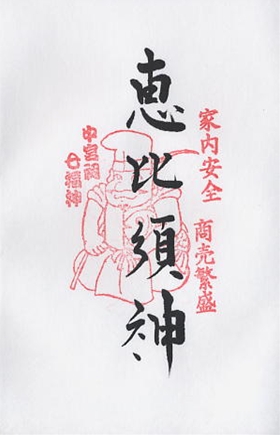 家内安全 商売繁盛
恵比須神
中宮祠
七福神